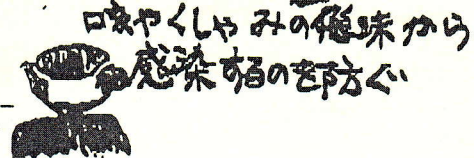 咳やくしゃみの飛沫から
感染するのを防ぐ